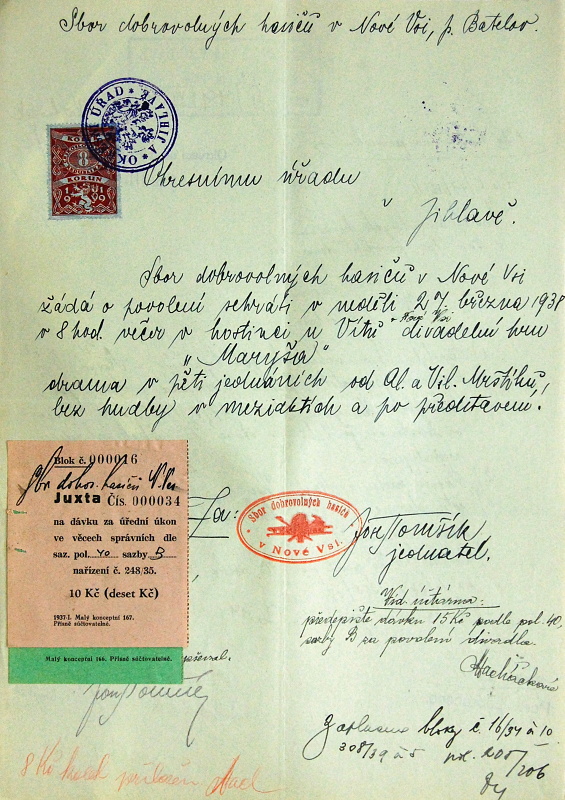 Sbor dobrovolných hasičů v Nové Vsi, p. Batelov.
OKRESNÍ ÚŘAD JIHLAVA
KORUN
8
KORUN
Okresnímu úřadu
v Jihlavě.
Sbor dobrovolných hasičů v Nové Vsi
žádá o povolení sehráti v neděli 20. března 1938
v Nové Vsi
v 8 hod. večer v hostinci u Vítů divadelní hru
„Maryša"
drama v pěti jednáních od Al. a Vil. Mrštíků,
bez hudby v meziaktích a po představení.
Blok č. 000016
Sbor dobr. hasičů N. Ves
Juxta Čís. 000034
na dávku za úřední úkon
ve věcech správních dle
saz. pol. 40 sazby B
nařízení č. 248/35.
10 Kč (deset Kč)
1937-I. Malý konceptní 167.
Přísně súčtovatelné.
Malý konceptní 166. Přísně súčtovatelné.
Za:
Sbor dobrovolných hasičů
v Nové Vsi.
Jos. Tomšík
jednatel.
Vid. účtárna:
předepište dávku 15 Kč podle pol. 40,
sazby B za povolení divadla.
č. 16/34 à 10
308/39 à 5
206
8 Kč kolek přiložen